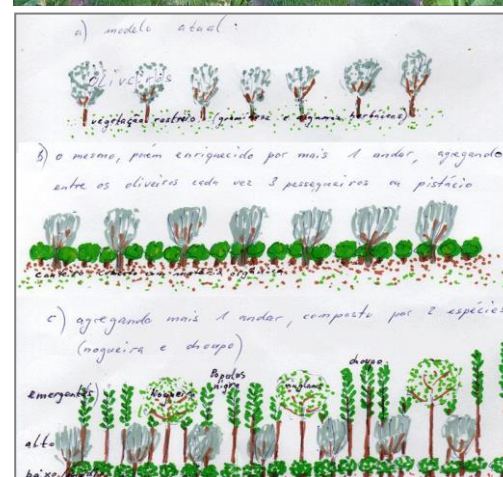 a) modelo atual:
Oliveiros
vegetação rasteira (gramíneas e algumas herbáceas)
b) o mesmo, porém enriquecido por mais 1 andar, agregando
entre os oliveiros cada vez 3 pessegueiros ou pistácio
orgânica
c) agregando mais 1 andar, composto por 2 espécies
(nogueira e choupo)
emergentes
Nogueira
Populos
nigra
choupo
alto
baixo